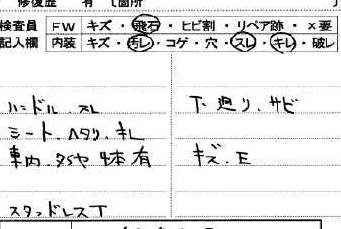 修復歴 有 [箇所
検査員 FW キズ・飛石・ヒビ割・リペア跡・X要
記入欄 内装 キズ・汚レ・コゲ・穴・スレ・キレ・破レ
ハンドル.スレ
シート.ヘタリ.キレ
車内.タイヤ 4本有
スタッドレス丁
下廻り.サビ
キズ.E